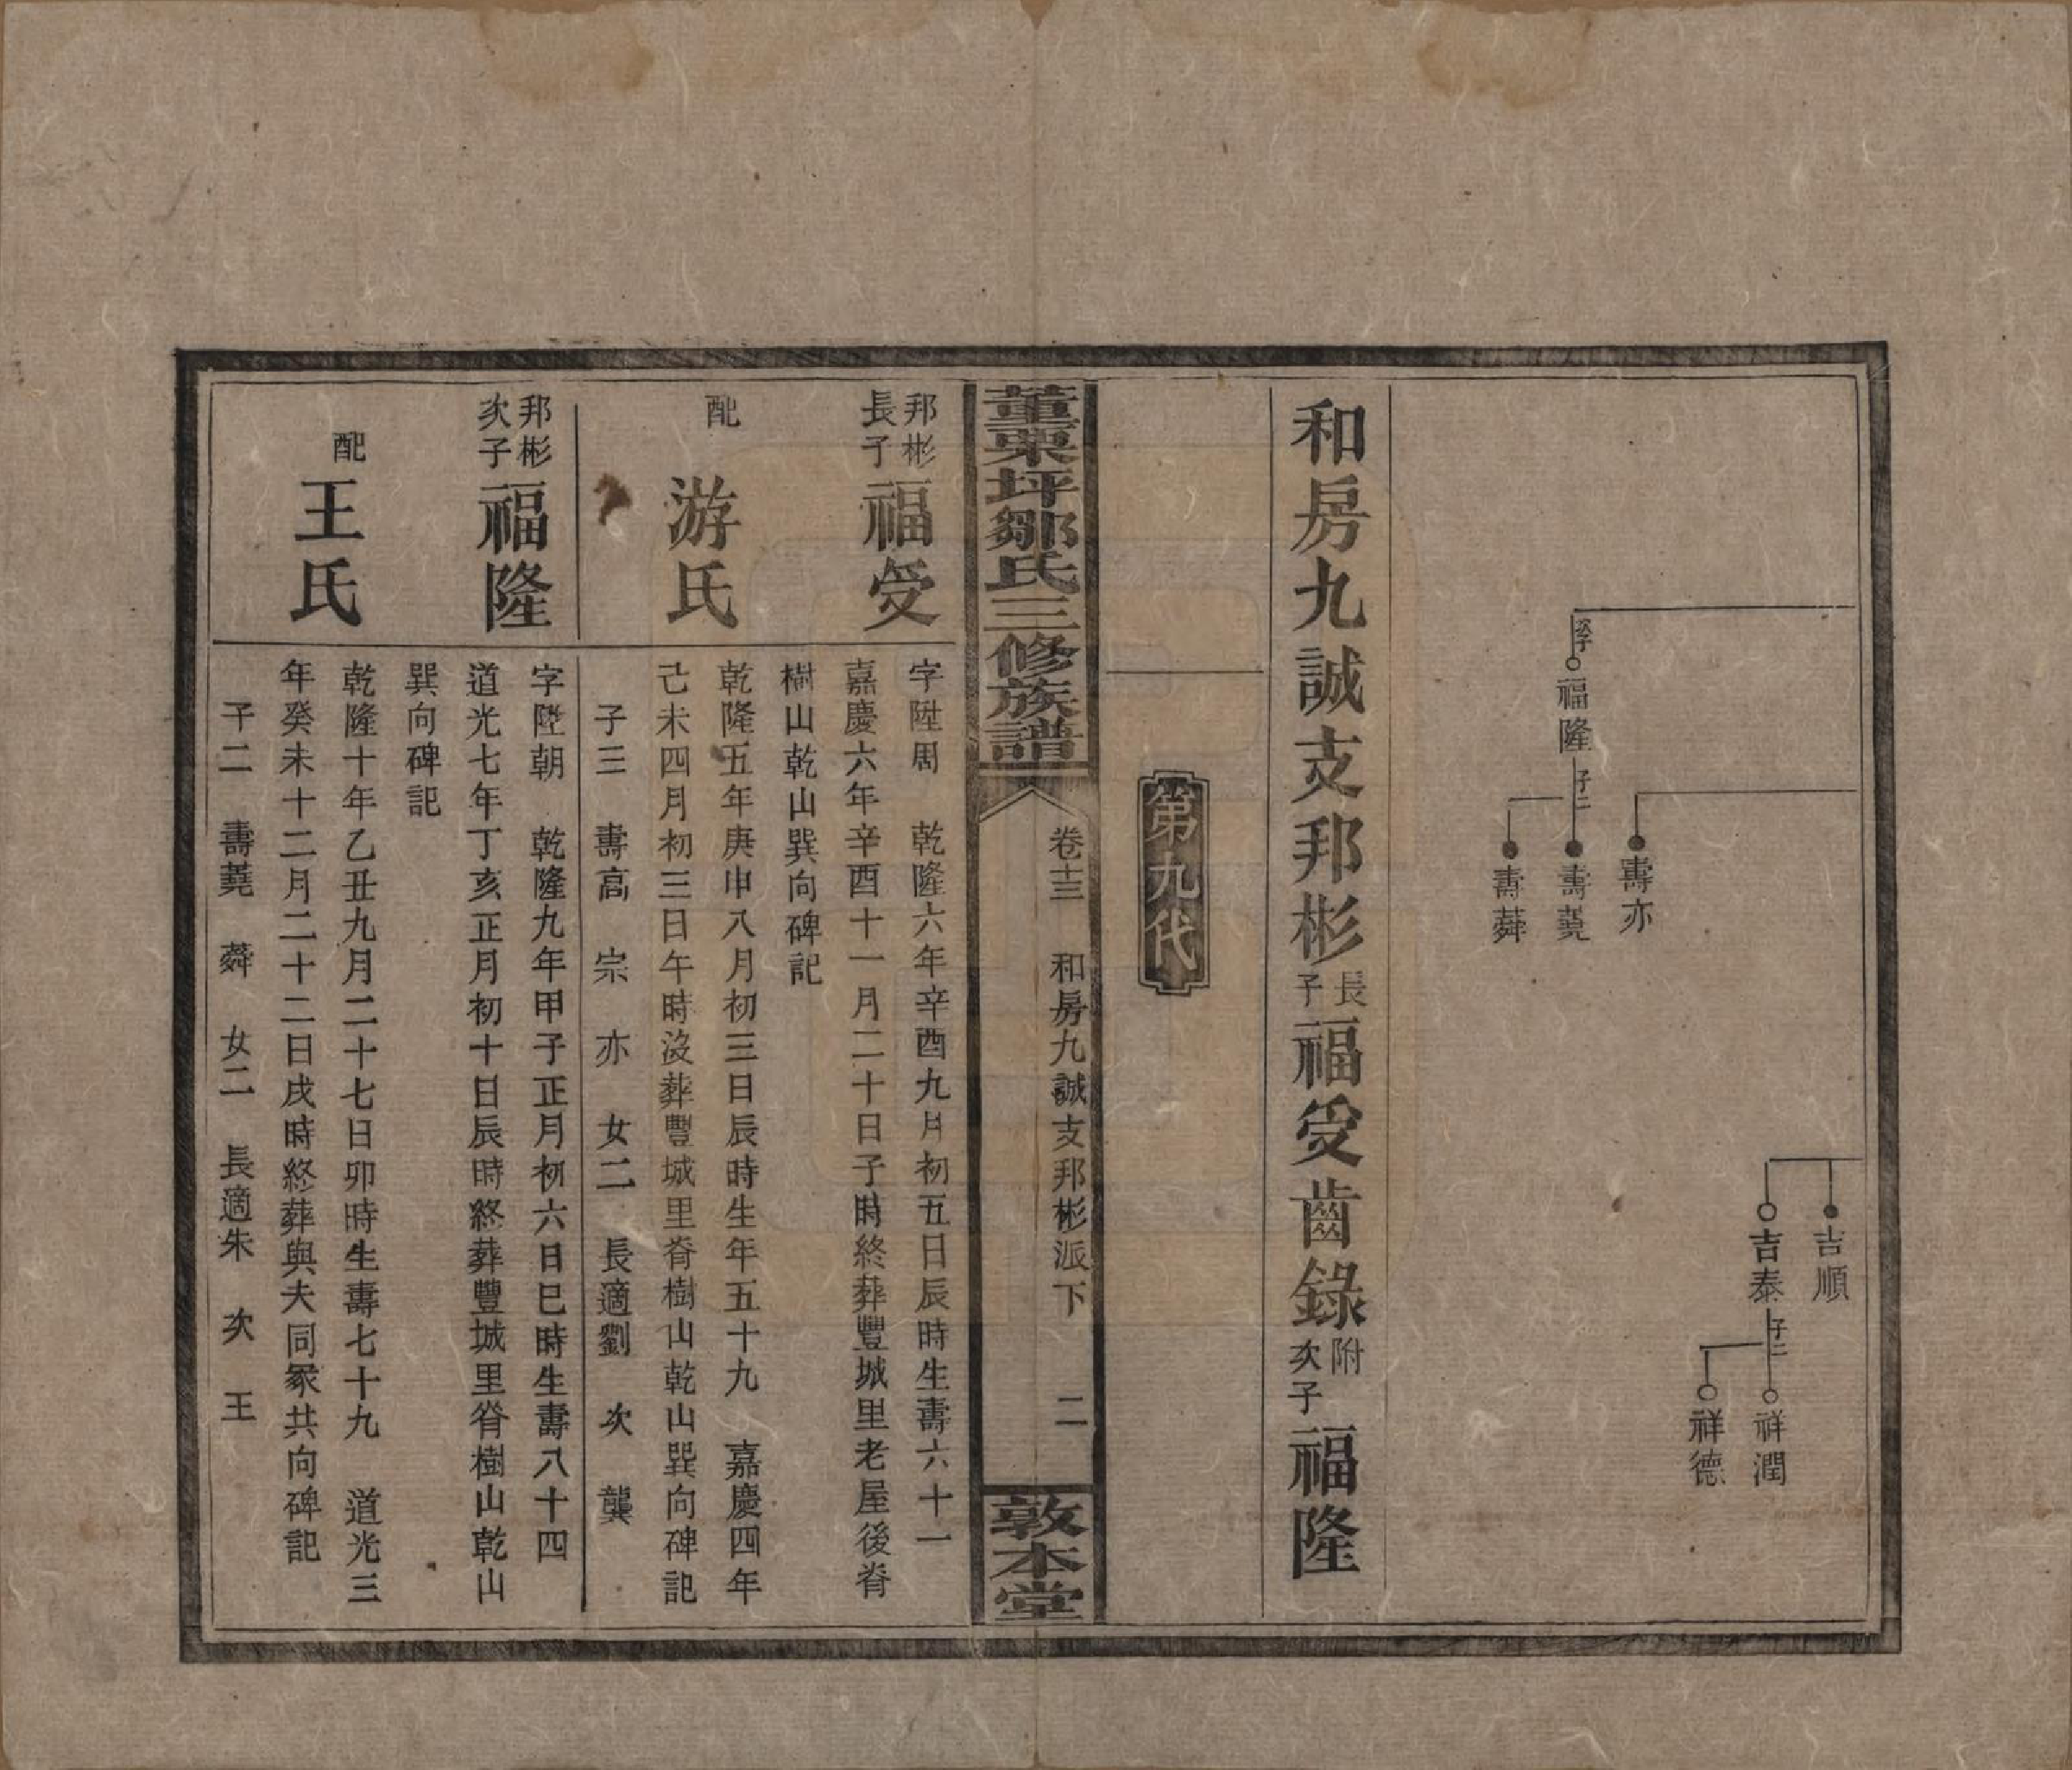 吉順
吉泰
子二
祥潤
祥德
壽亦
次子
福隆
子二
壽蕘
壽蕣
和房九誠支邦彬長子福受齒錄附次子福隆
第九代
董栗坪鄒氏三修族譜
卷十三　和房九誠支邦彬派下　二
敦本堂
邦彬長子　福受
字陞周　乾隆六年辛酉九月初五日辰時生壽六十一
嘉慶六年辛酉十一月二十日子時終葬豐城里老屋後脊
樹山乾山巽向碑記
配　游氏
乾隆五年庚申八月初三日辰時生年五十九　嘉慶四年
己未四月初三日午時沒葬豐城里脊樹山乾山巽向碑記
子三　壽高　宗　亦　女二　長適劉　次　龔
邦彬次子　福隆
字陞朝　乾隆九年甲子正月初六日巳時生壽八十四
道光七年丁亥正月初十日辰時終葬豐城里脊樹山乾山
巽向碑記
配　王氏
乾隆十年乙丑九月二十七日卯時生壽七十九　道光三
年癸未十二月二十二日戌時終葬與夫同冢共向碑記
子二　壽蕘　蕣　女二　長適朱　次　王